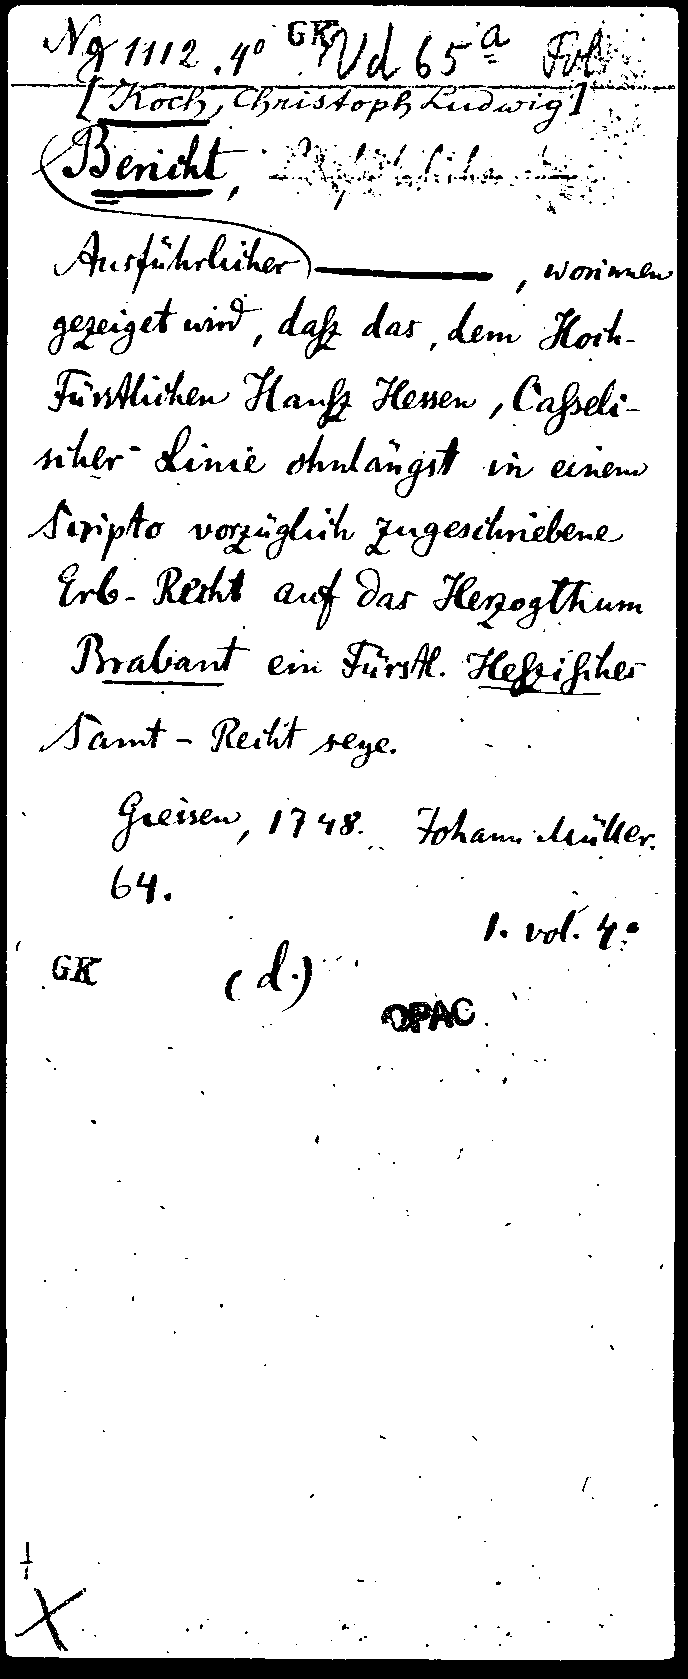 Ng 1112. 4° GK Vd 65 a Fol
[Koch, Christoph Ludwig]
Bericht,
Ausführlicher ———, worinnen
gezeiget wird, daſz das, dem Hoch-
Fürstlichen Hauſz Hessen, Caſseli-
scher Linie ohnlängst in einem
Scripto vorzüglich zugeschriebene
Erb-Recht auf das Herzogthum
Brabant ein Fürstl. Heſziſches
Samt-Recht seye.
Giessen, 1748. Johann Müller.
64.
1. vol. 4°
GK (d.)
OPAC